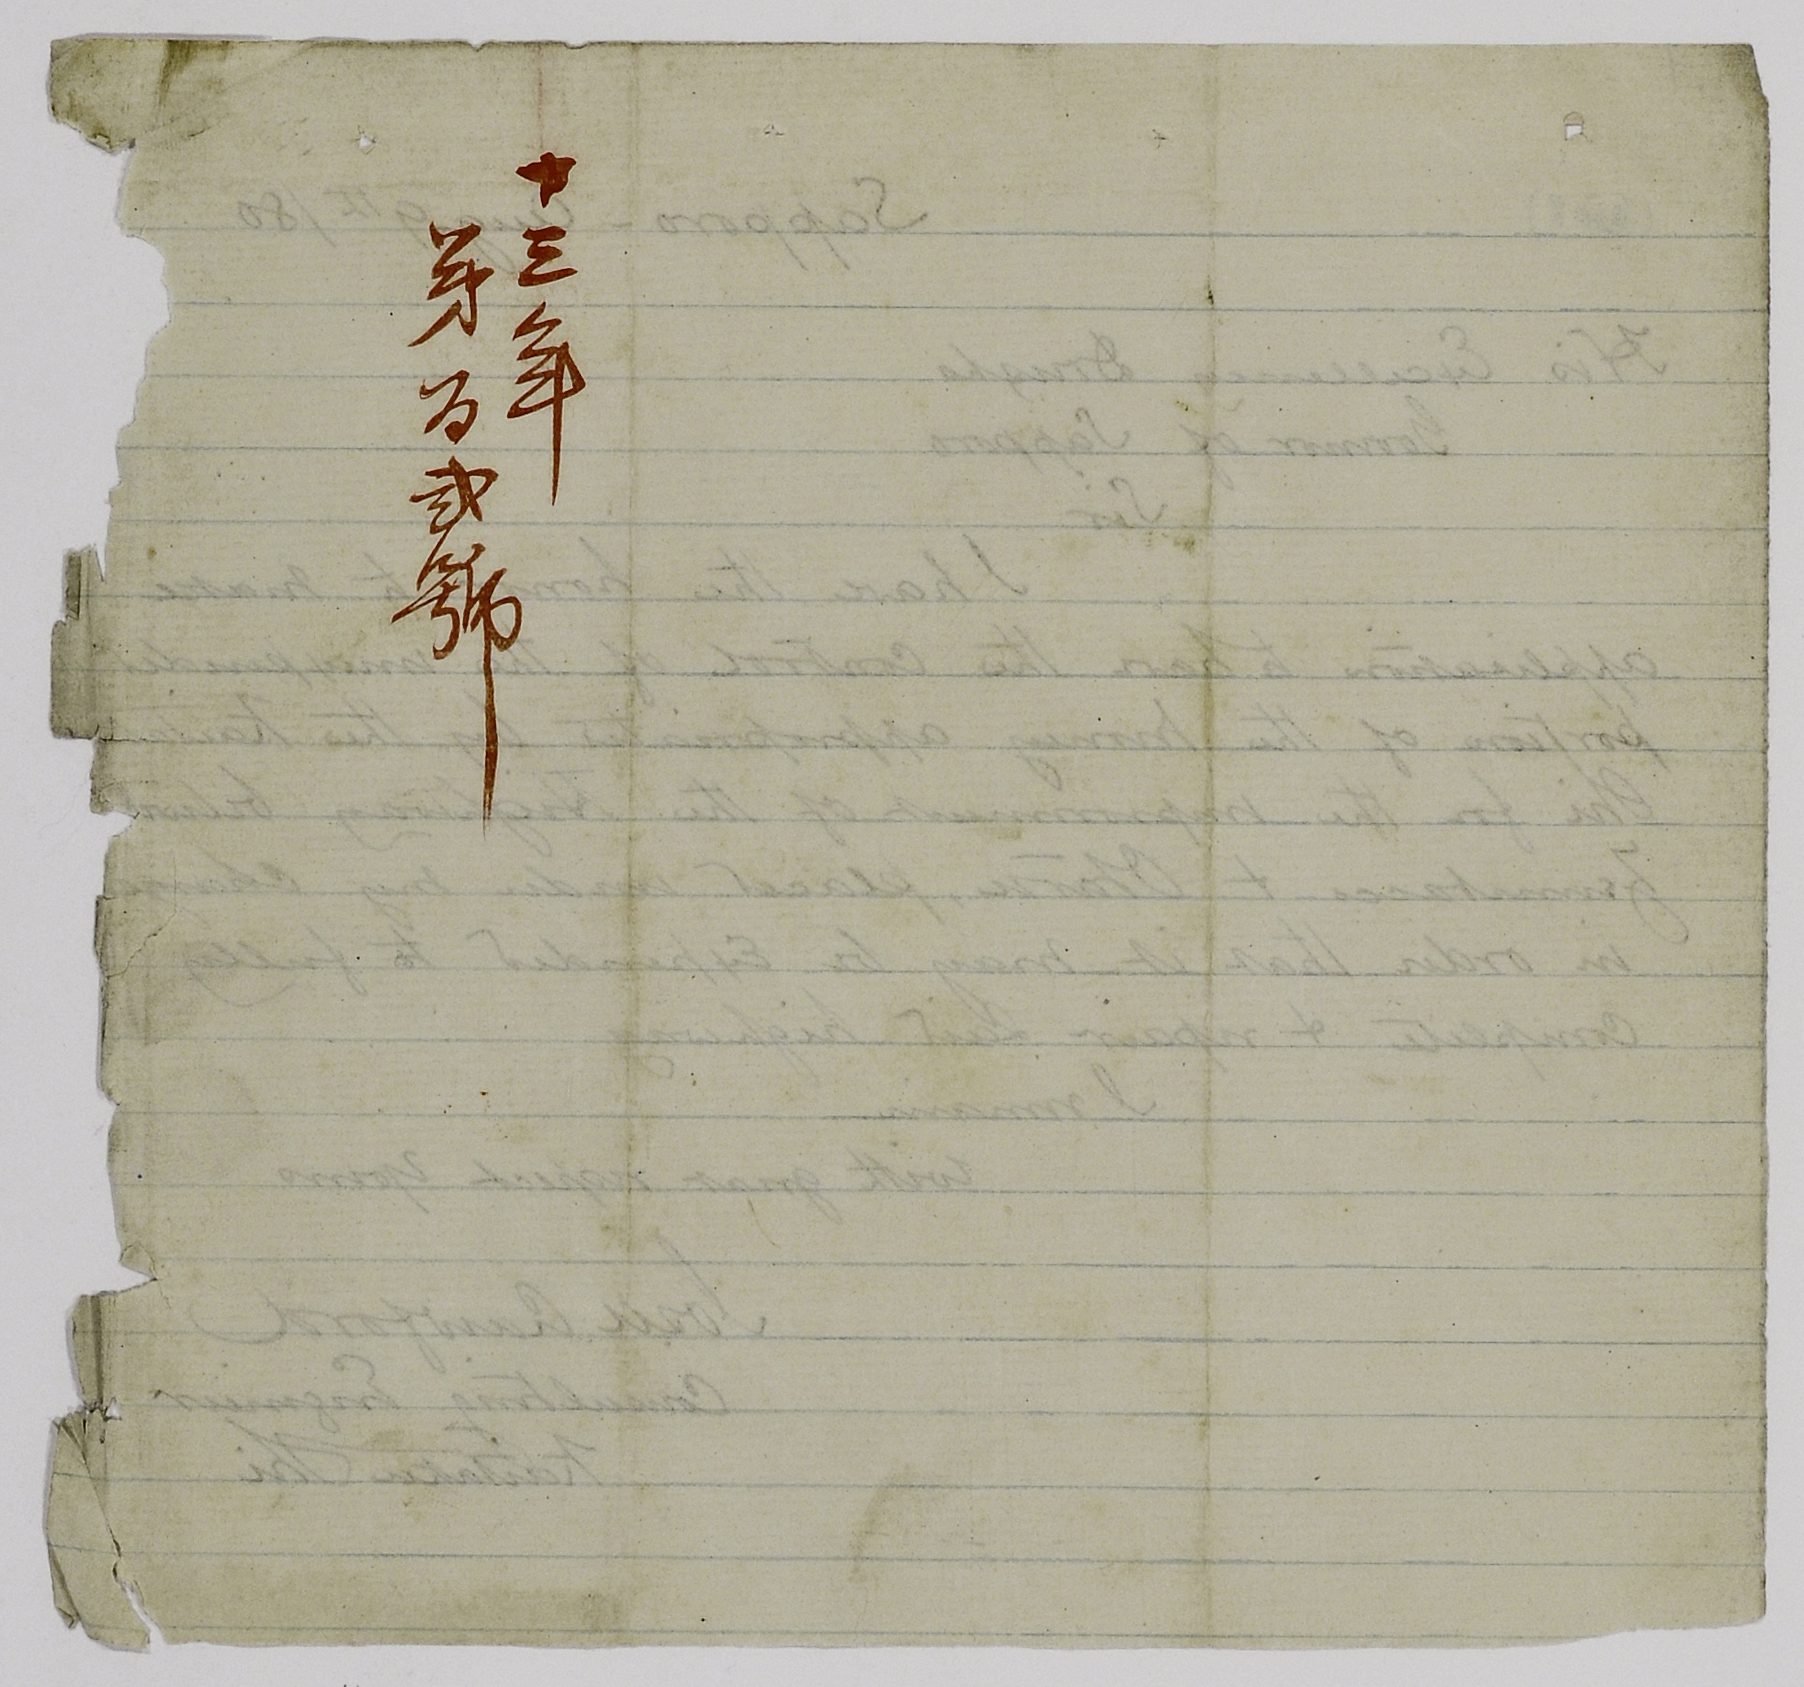 十三年
第百弐號
Sapporo - Aug 9th /80
His Excellency
Governor of Sapporo
Sir
I have the honor to make
application to have the control of the unexpended
portion of the money appropriated by the Kaita
Shi for the improvement of the Highway between
& Otaru, placed under my charge
in order that it may be expended to fully
complete & repair said highway
I remain
with great respect Yours
Crawford
Consulting Engineer
Kaitaku Shi